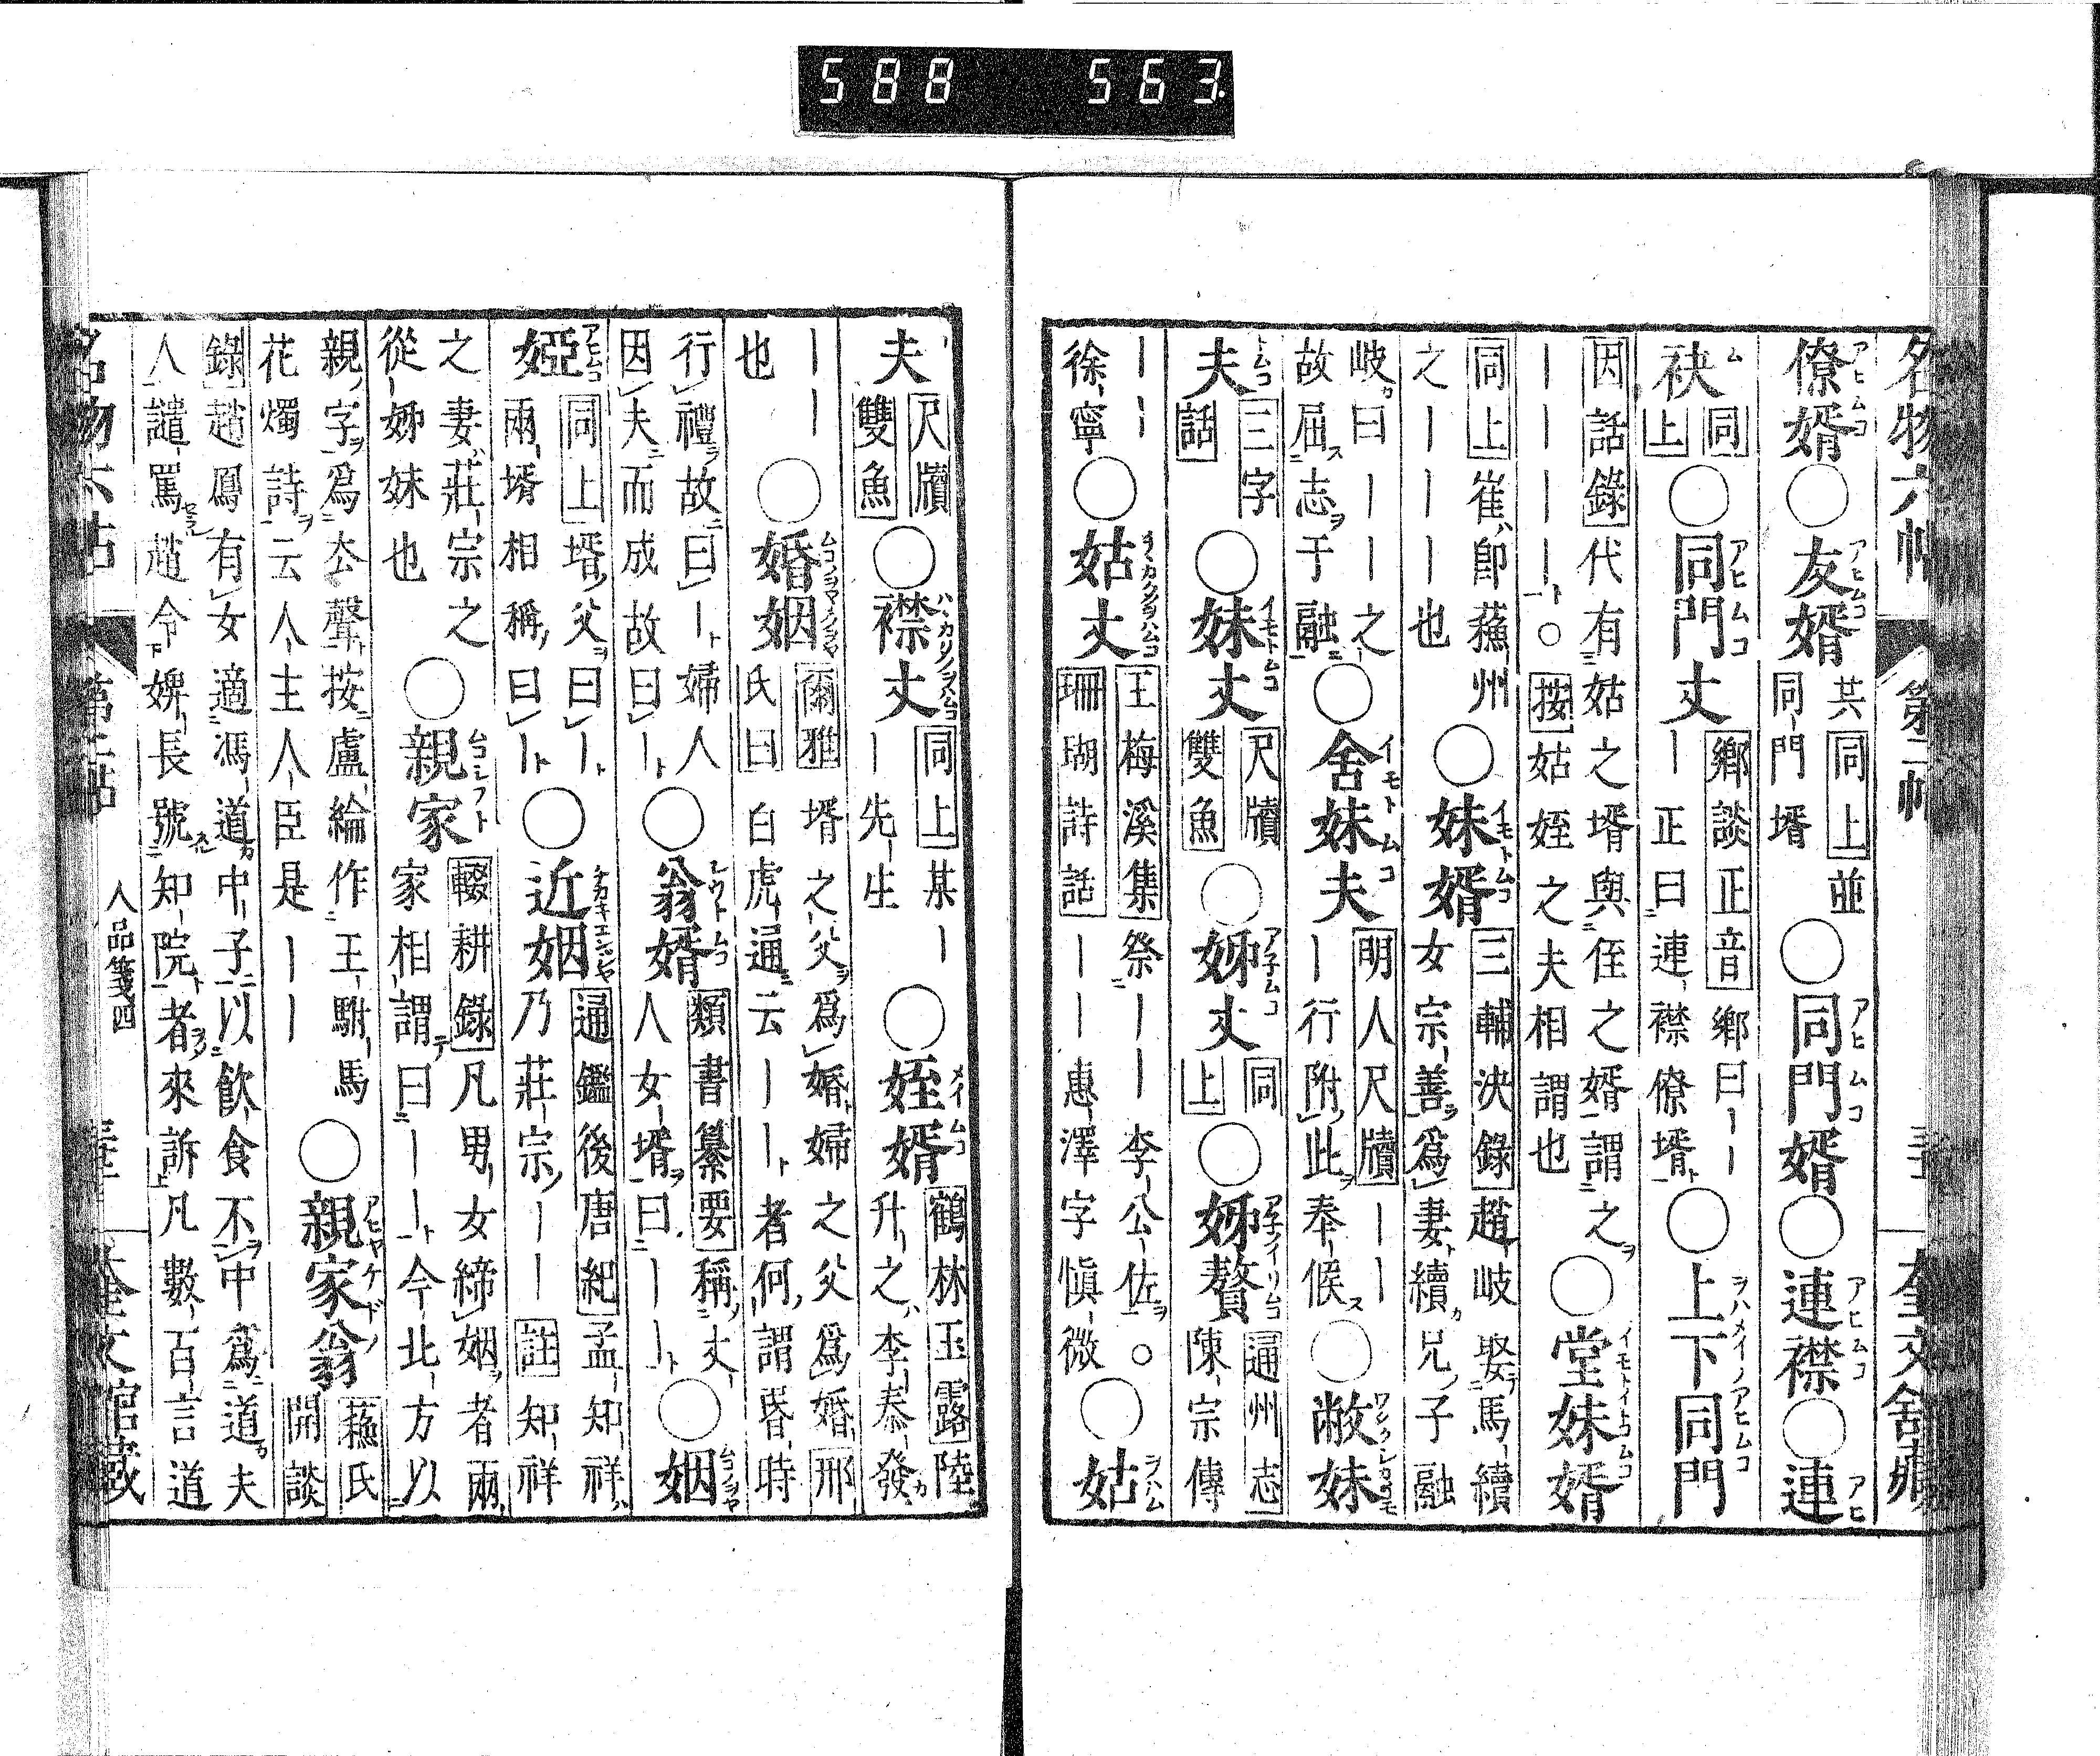 588 563
名物六帖 第二帖 奎文舘藏
僚婿○友婿 共同上並
同門壻 ○同門婿○連襟○連
袂 同
上 ○同門丈 鄉談正音鄉曰——
—正曰連襟僚壻 ○上下同門
因話錄代有姑之壻與侄之婿謂之
————。按姑姪之夫相謂也 ○堂妹婿
同上崔卽蘓州
之————也 ○妹婿 三輔決錄趙岐娶馬續
女宗善爲妻續兄子融
岐曰——之
故屈志于融 ○舍妹夫 明人尺牘——
—行附此奉候 ○敝妹
夫 三字
話 ○妹丈 尺牘
雙魚 ○姊丈 同
上 ○姊贅 通州志
陳宗傳
——
徐寧 ○姑丈 王梅溪集祭——李公佐。
珊瑚詩話——惠澤字愼微 ○姑
夫 尺牘
雙魚 ○襟丈 同上某—
—先生 ○姪婿 鶴林玉露陸
升之李泰發
——
也 ○婚姻 爾雅壻之父爲婚婦之父爲婚邢
氏曰白虎通云——者何謂昏時
行禮故曰—婦人
因夫而成故曰— ○翁婿 類書纂要稱丈
人女壻曰—— ○姻
婭 同上壻父曰—
兩壻相稱曰— ○近姻 通鑑後唐紀孟知祥
乃莊宗——註知祥
之妻莊宗之
從姊妹也 ○親家 輟耕錄凡男女締姻者兩
家相謂曰——今北方以
親字爲去聲按盧綸作王駙馬
花燭詩云人主人臣是—— ○親家翁 蘓氏
開談
錄趙鳳有女適馮道中子以飮食不中爲道夫
人譴罵趙令婢長號知院者來訴凡數百言道
名物六帖 第二帖 人品箋四 奎文舘藏